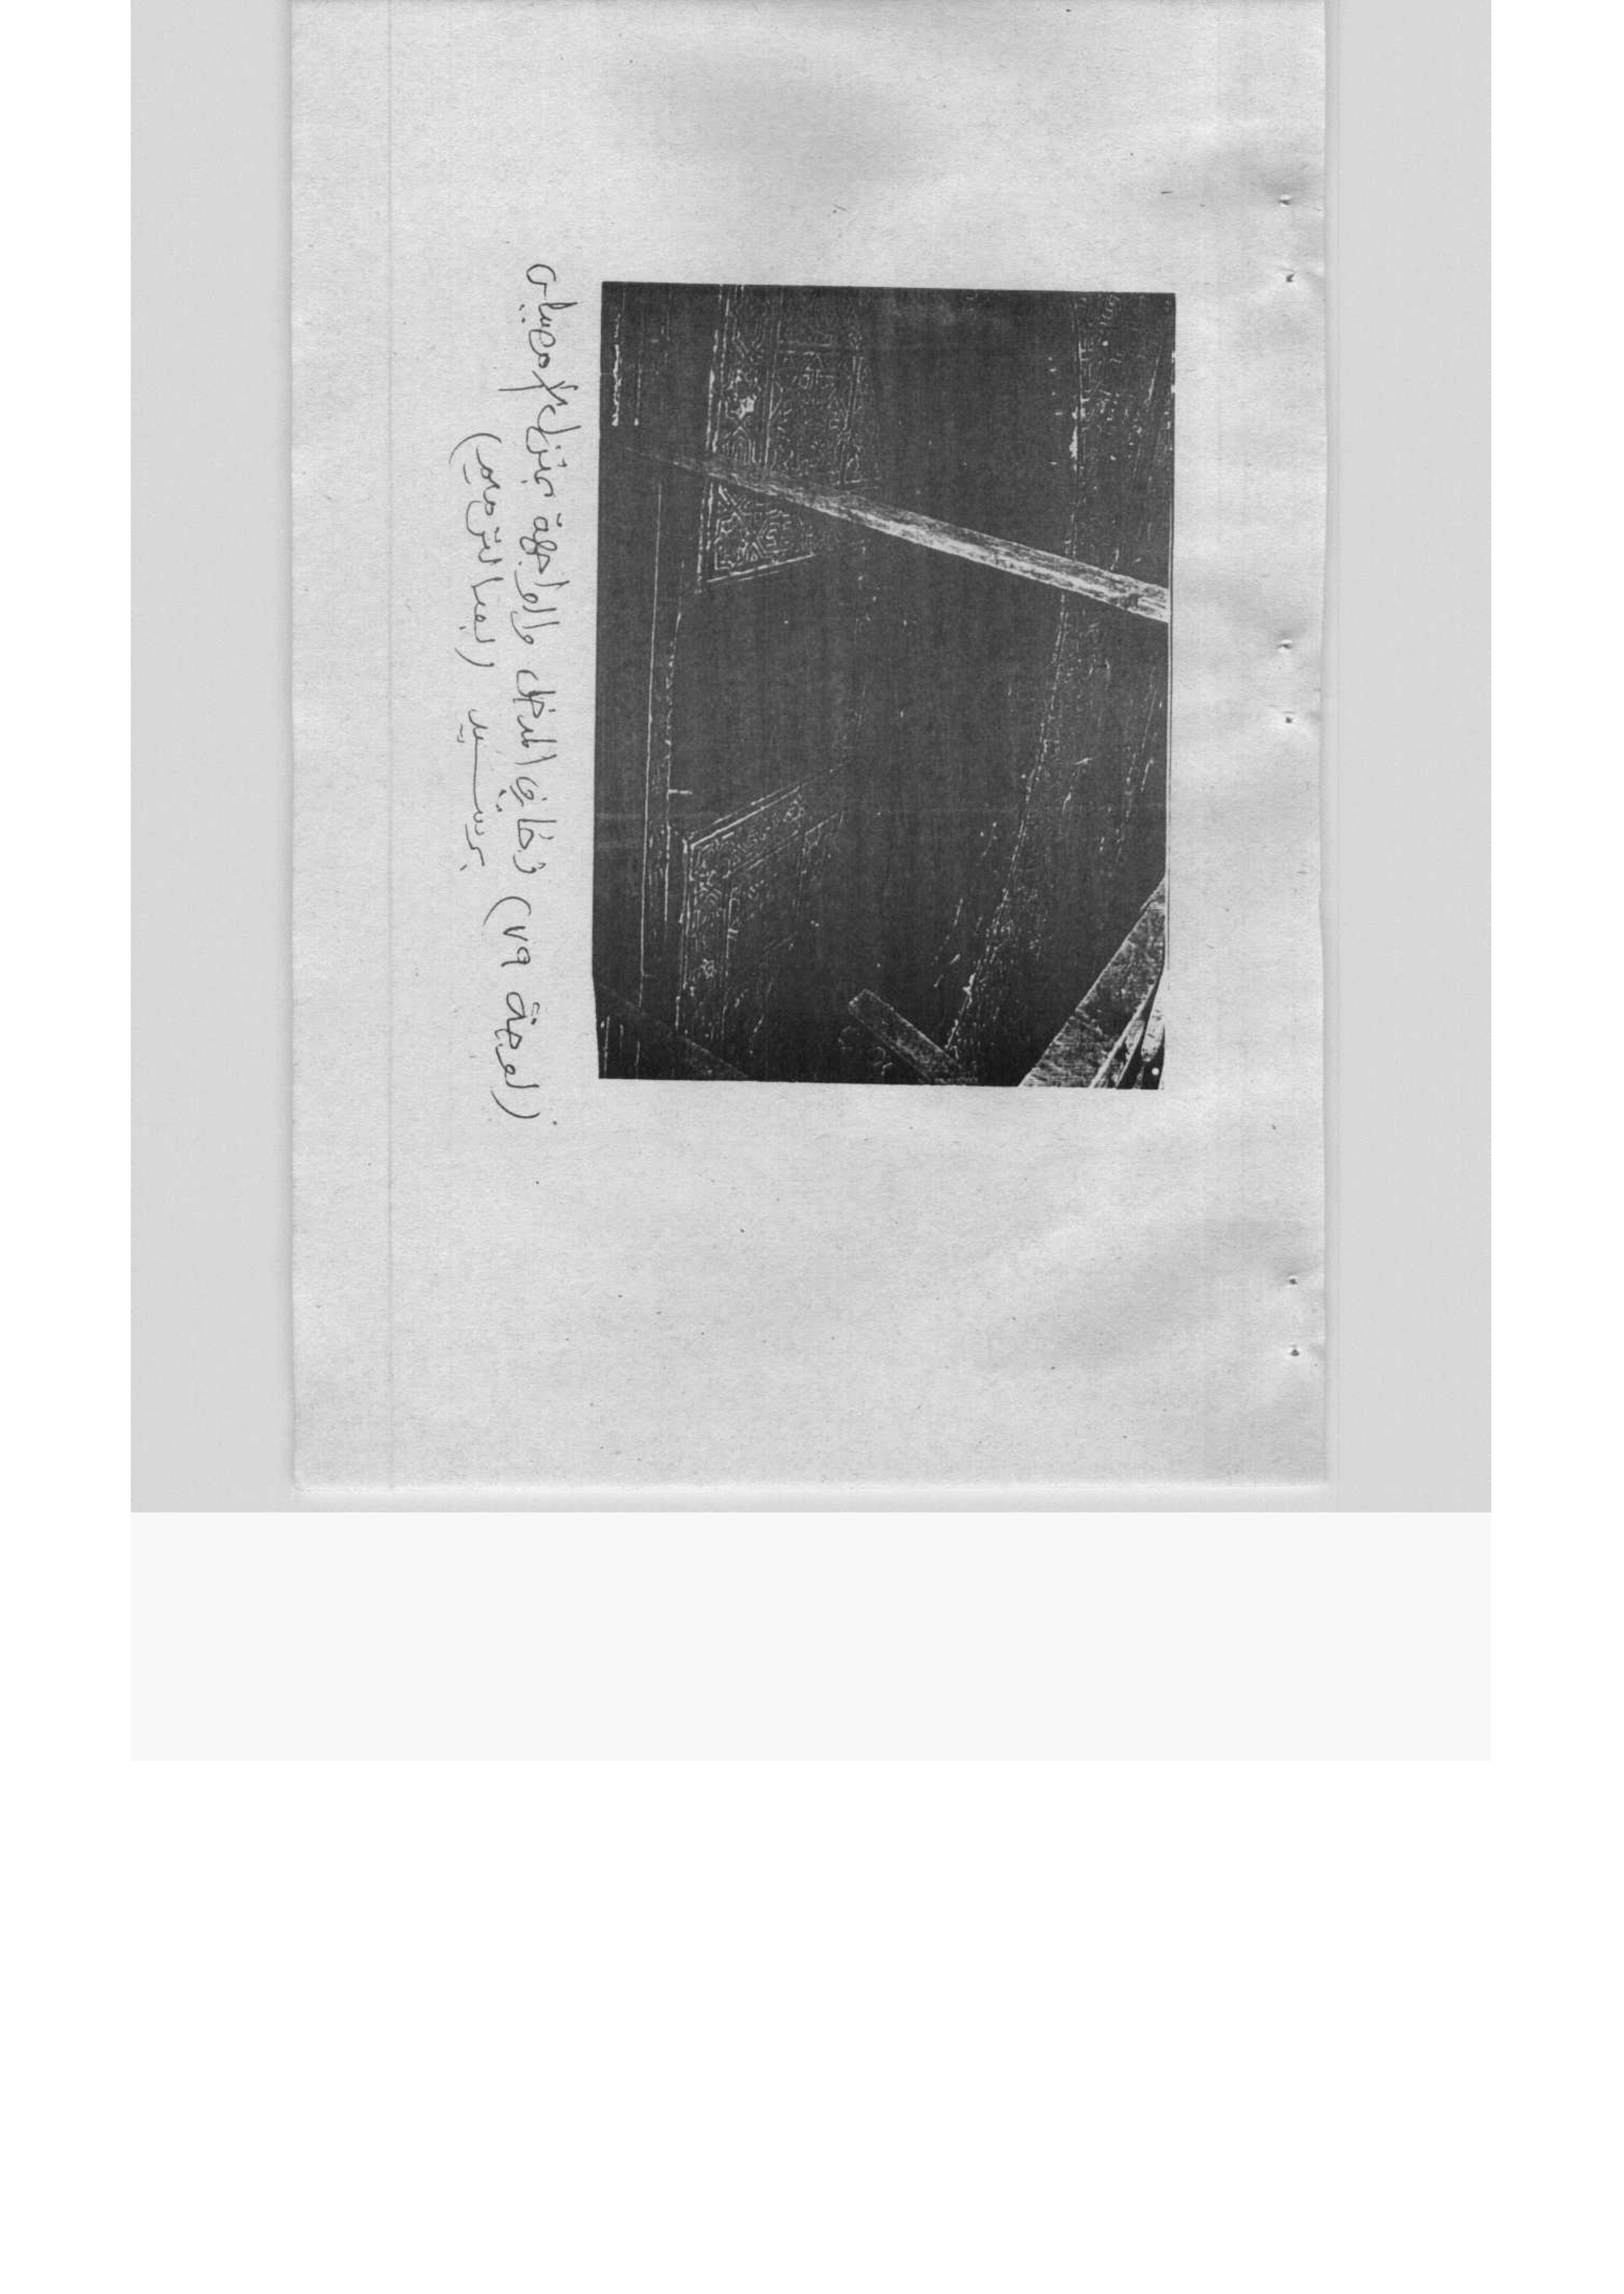 (لوحة ٧٩) زخارف المدخل والواجهة بمنزل
برشيد (بعد الترميم)